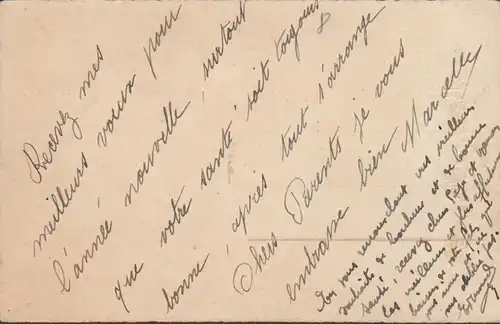 Recevez mes
meilleurs vœux pour
l'année nouvelle, surtout
que votre santé soit toujours
bonne, après tout s'arrange
Chers Parents je vous
embrasse bien Marcelle
En vous renouvelant mes meilleurs
souhaits de bonheur et de bonne
santé, recevez chers
les meilleurs et plus affectueux
baisers de